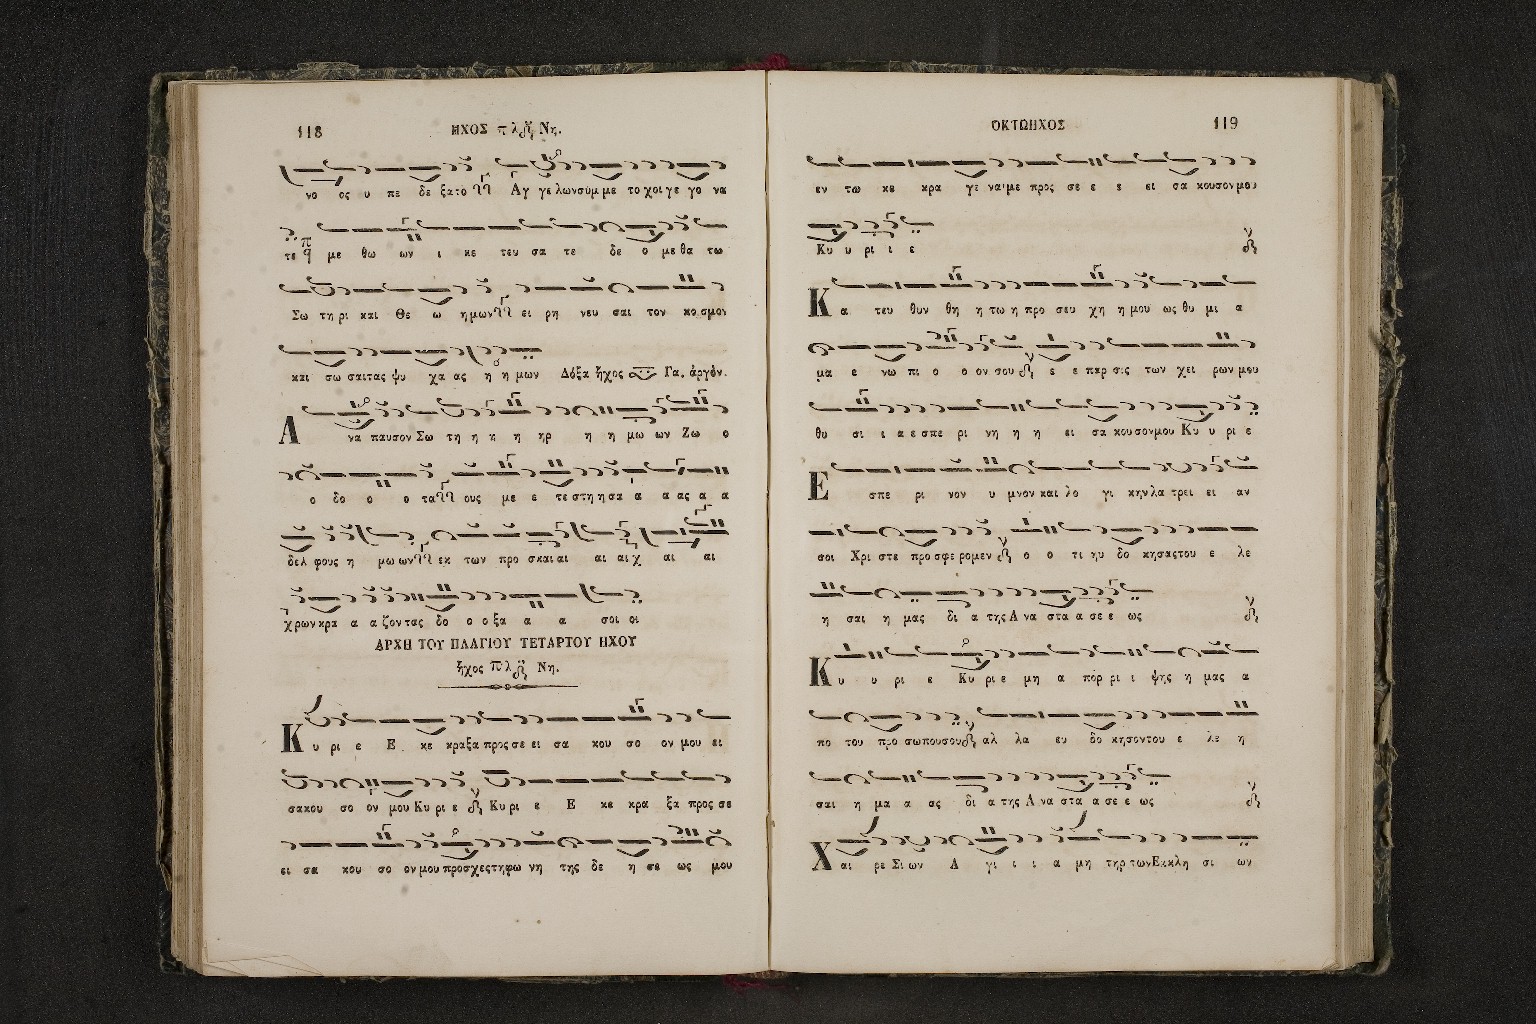 118
ΗΧΟΣ πλ Νη.
νο ος υ πε δε ξατο Αγ γε λωνσυμ με το χοι γε γο να
τε με θω ων ι κε τευ σα τε δε ο με θα τω
Σω τη ρι και Θε ω ημων ει ρη νευ σαι τον κοσμον
και σω σαιτας ψυ χα ας η η μων Δόξα ἦχος Γα. ἀργόν.
Α να παυσον Σω τη η η η ηρ η η μω ων Ζω ο
ο δο ο ο τα ους με ε τε στη η σα α α ας α α
δελ φους η μω ων εκ των προ σκαι αι αι αι χ αι αι
χρων κρα α α ζον τας δο ο ο ξα α α σοι οι
ΑΡΧΗ ΤΟΥ ΠΛΑΓΙΟΥ ΤΕΤΑΡΤΟΥ ΗΧΟΥ
ἦχος πλ Νη.
Κ υ ρι ε Ε κε κραξα προς σε ει σα κου σο ον μου ει
σακου σο ον μου Κυ ρι ε Κυ ρι ε Ε κε κρα ξα προς σε
ει σα κου σο ον μου προσχεςτηφω νη της δε η σε ως μου
ΟΚΤΩΗΧΟΣ
119
εν τω κε κρα γε ναι με προς σε ε ε ει σα κουσονμου
Κυ υ ρι ι ε
Κ α τευ θυν θη η τω η προ σευ χη η μου ως θυ μι α
μα ε νω πι ο ο ον σου ε ε παρ σις των χει ρων μου
θυ σι ι α ε σπε ρι νη η η ει σα κουσονμου Κυ υ ρι ε
Ε σπε ρι νον υ μνον και λο γι κην λα τρει ει αν
σοι Χρι στε προ σφε ρομεν ο ο τι ηυ δο κησαςτου ε λε
η σαι η μας δι α της Α να στα α σε ε ως
Κ υ υ ρι ε Κυ ρι ε μη α πορ ρι ι ψης η μας α
πο του προ σωπουσου αλ λα ευ δο κησοντου ε λε η
σαι η μα α ας δι α της Α να στα α σε ε ως
Χ αι ρε Σι ων Α γι ι ι α μη τηρ των Εκκλη σι ων